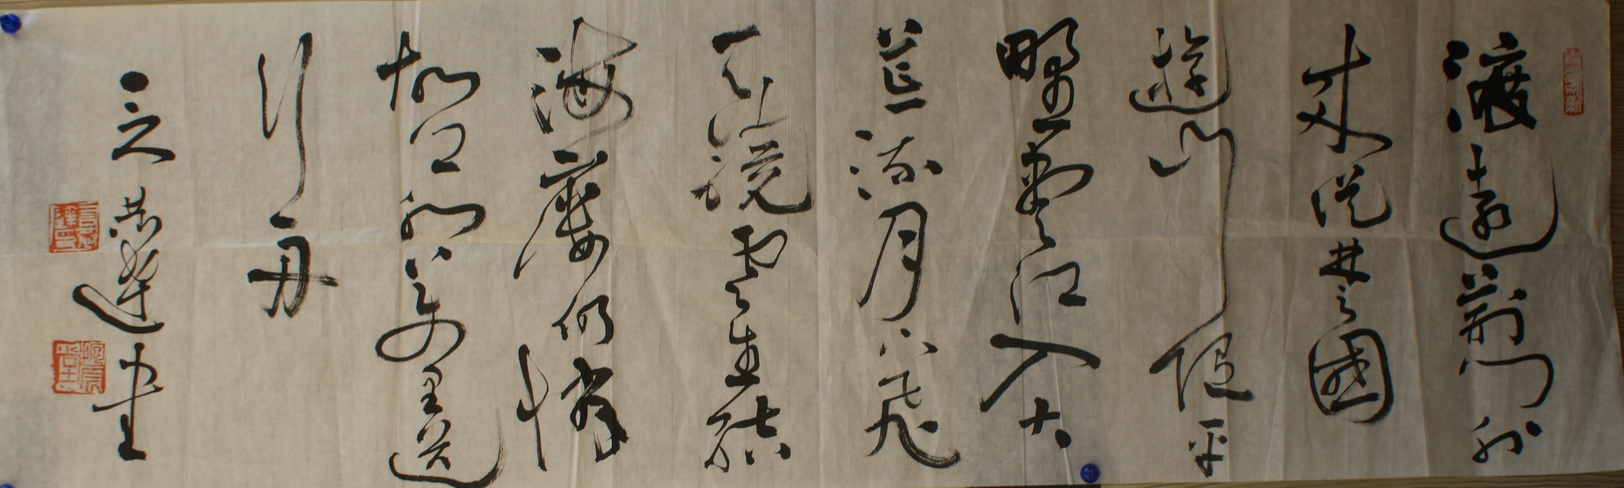 渡遠荊門外
来從楚國
遊山隨平
野盡江入大
荒流月下飛
天鏡雲生結
海樓仍憐
故鄉水萬里送
行舟
言恭達书